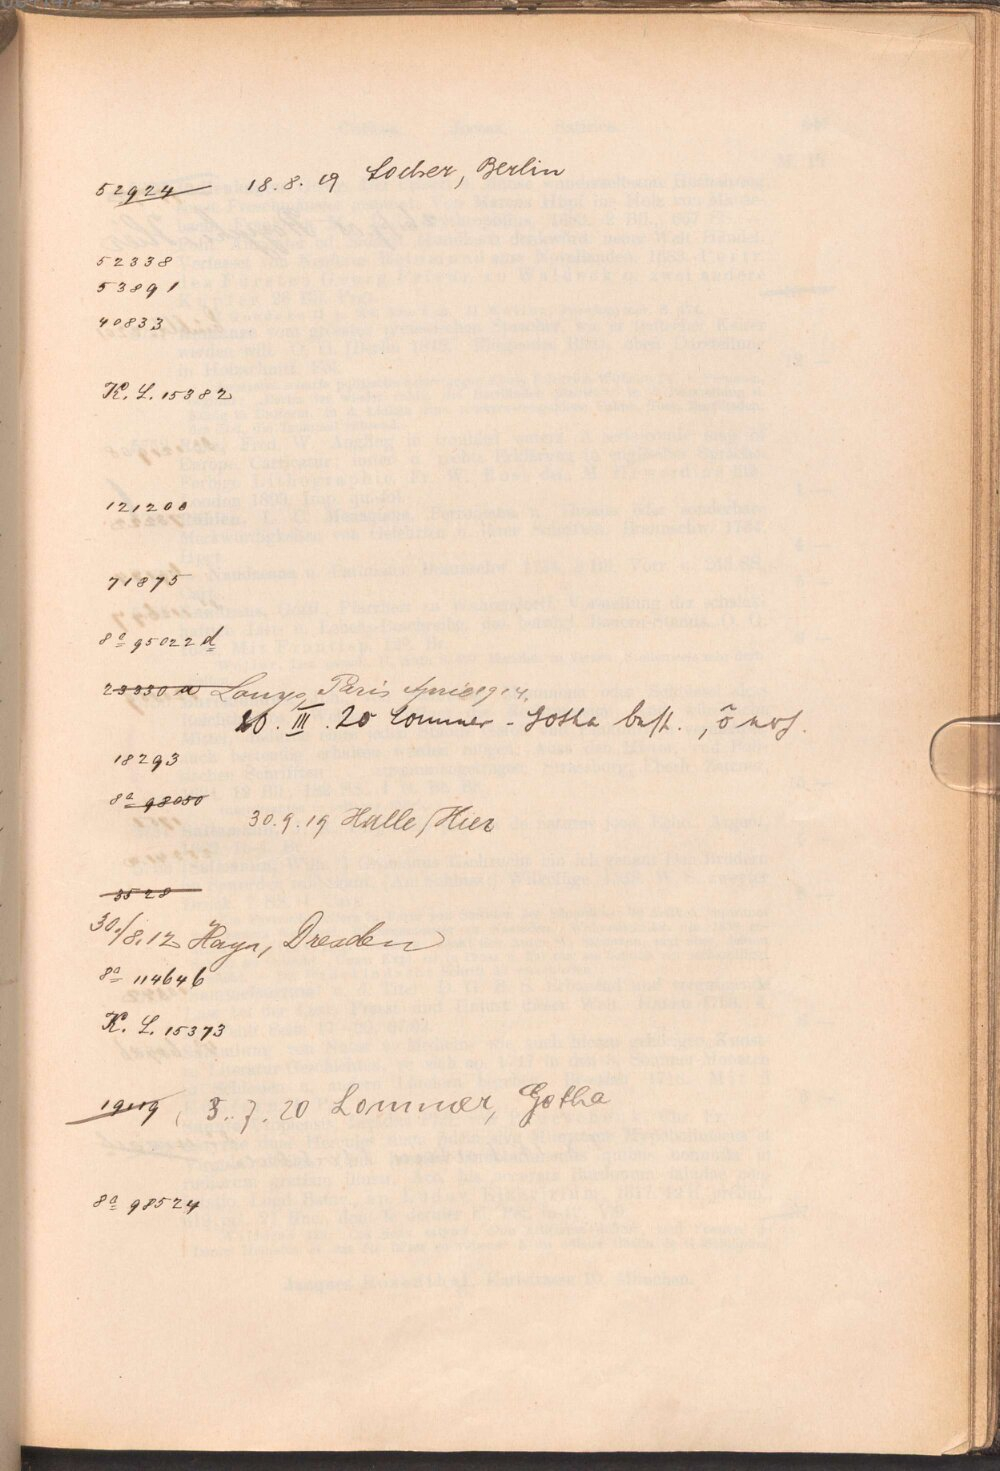 52924 18.8.19 Locher, Berlin
52338
53891
40833
K. L. 15382
121200
71875
8° 95022 d
23330 a Paris April 1914.
20. III. 20 Lommer - Gotha best.,
18293
8° 98050
30.9.19 Halle / Hier
3528
30./8.12 Hayn, Dresden
8° 114646
K. L. 15373
19119 3.7.20 Lommer, Gotha
8° 98524